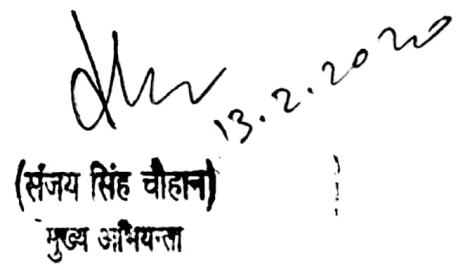 13.2.2020
(संजय सिंह चौहान)
मुख्य अभियन्ता